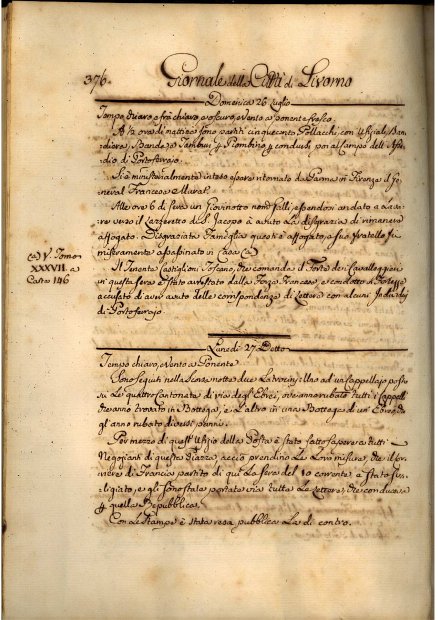 376. Giornale della Città di Livorno
Domenica 26 Luglio
Tempo chiaro, e frà chiaro, e oscuro, e vento a ponente fresco.
A h ore di mattina sono partiti cinquecento Pollacchi, con Ufiziali, Ban-
diera, Banda, e Tamburi, p Piombino, p condursi poi al Campo dell'Asse-
dio di Portoferrajo.
Si è ministerialmente inteso essere ritornato da Parma in Firenze il Ge-
neral Francese Murat.
Alle ore 6 di sera un Giovinetto nom Felli, essendosi andato a lava-
re verso il Lazzeretto di S. Jacopo à avuto la disgrazia di rimanere
affogato. Disgraziata Famiglia questi è affogato, e suo Fratello fu
miseramente assassinato in Casa (a)
(a) V. Tomo
XXXVII. a
Carte 146
Il Tenente Castiglioni Toscano, che comanda il Forte dei Cavalleggieri
in questa sera è stato arrestato dalla Forza Francese, e condotto in Fortezza
accusato di aver avuto delle corrispondenze di Lettere con alcuni Individui
di Portoferrajo.
Lunedì 27 Detto
Tempo chiaro, e Vento a Ponente.
Sono seguiti nella scorsa notte due Latrocinj, uno ad un Cappellajo posto
su le quattro Cantonate di via degl'Ebrei, ove anno rubato tutti i Cappelli
che anno trovato in Bottega, e l'altro in una Bottega di un Ebreo da
gl'anno rubato diversi panni.
Per mezzo di quest'Ufizio della Posta è stato fatto sapere a tutti i
Negozianti di questa Piazza, acciò prendino le Loro misure, che il Cor-
riere di Francia partito di qui la sera del 20 corrente è stato sva-
ligiato, e gli sono state portate via tutte le Lettere, che conduceva
p quella Repubblica.
Con le Stampe è stata resa pubblica la di contro.